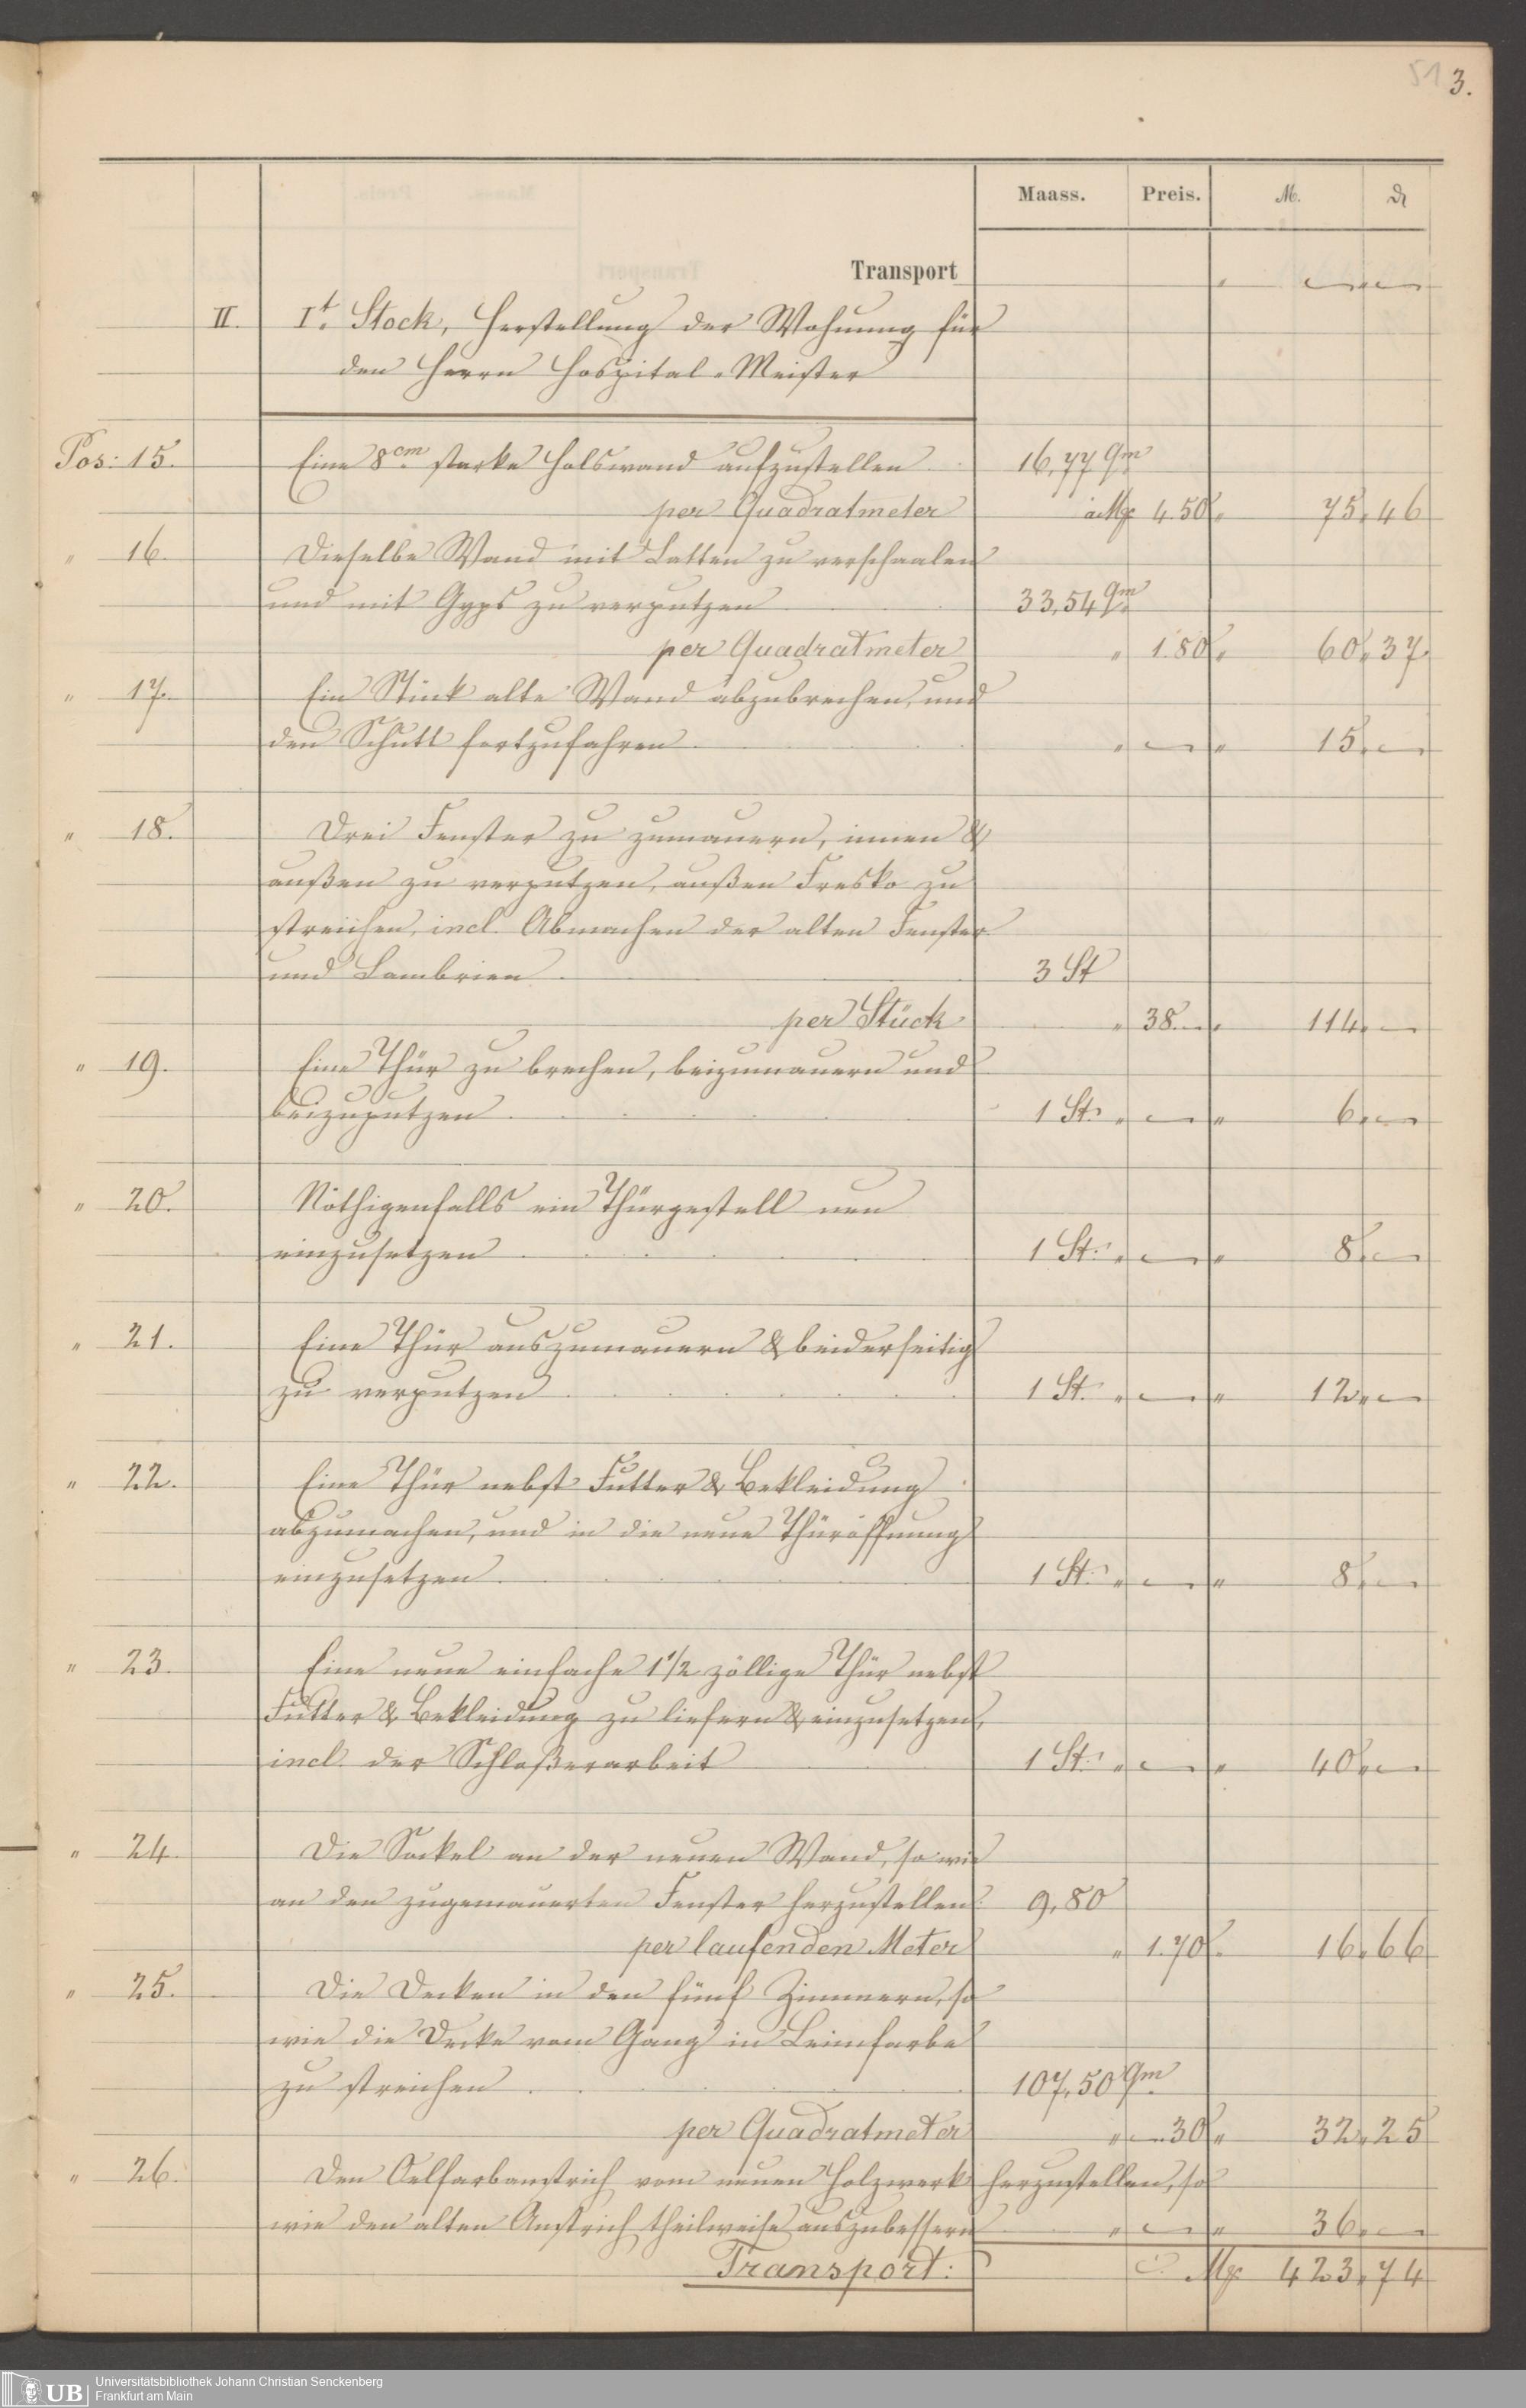 51 3.
Maass. Preis. M. ₰
Transport " — " —
II. I.t Stock, Herstellung der Wohnung für
den Herrn Hospital-Meister
Pos: 15. Eine 8cm starke Holzwand aufzustellen 16,77 Qm
per Quadratmeter a Mk 4.50 " 75,46
" 16. Dieselbe Wand mit Latten zu verschaalen
und mit Gyps zu verputzen 33,54 Qm
per Quadratmeter " 1.80 " 60,37
" 17. Ein Stück alte Wand abzubrechen, und
den Schutt fortzufahren " — " 15,—
" 18. Drei Fenster zu zumauern, innen &
außen zu verputzen, außen Fresko zu
streichen, incl. Abmachen der alten Fenster
und Lambrien 3 St
per Stück " 38.— " 114,—
" 19. Eine Thür zu brechen, beizumauern und
beizuputzen 1 St. " — " 6,—
" 20. Nöthigenfalls ein Thürgestell neu
einzusetzen 1 St. " — " 8,—
" 21. Eine Thür auszumauern & beiderseitig
zu verputzen 1 St. " — " 12,—
" 22. Eine Thür nebst Futter & Bekleidung
abzumachen, und in die neue Thüröffnung
einzusetzen 1 St. " — " 8,—
" 23. Eine neue einfache 1 1/2 zöllige Thür nebst
Futter & Bekleidung zu liefern & einzusetzen,
incl. der Schloßerarbeit 1 St. " — " 40,—
" 24. Die Sockel an der neuen Wand, so wie
an den zugemauerten Fenster herzustellen 9,80
per laufenden Meter " 1.70 " 16,66
" 25. Die Decken in den fünf Zimmern, so
wie die Decke vom Gang in Leimfarbe
zu streichen 107,50 Qm
per Quadratmeter " —.30 " 32,25
" 26. Den Oelfarbanstrich vom neuen Holzwerk herzustellen, so
wie den alten Anstrich theilweise auszubessern " — " 36,—
Transport: Mk 423,74
UB Universitätsbibliothek Johann Christian Senckenberg
Frankfurt am Main